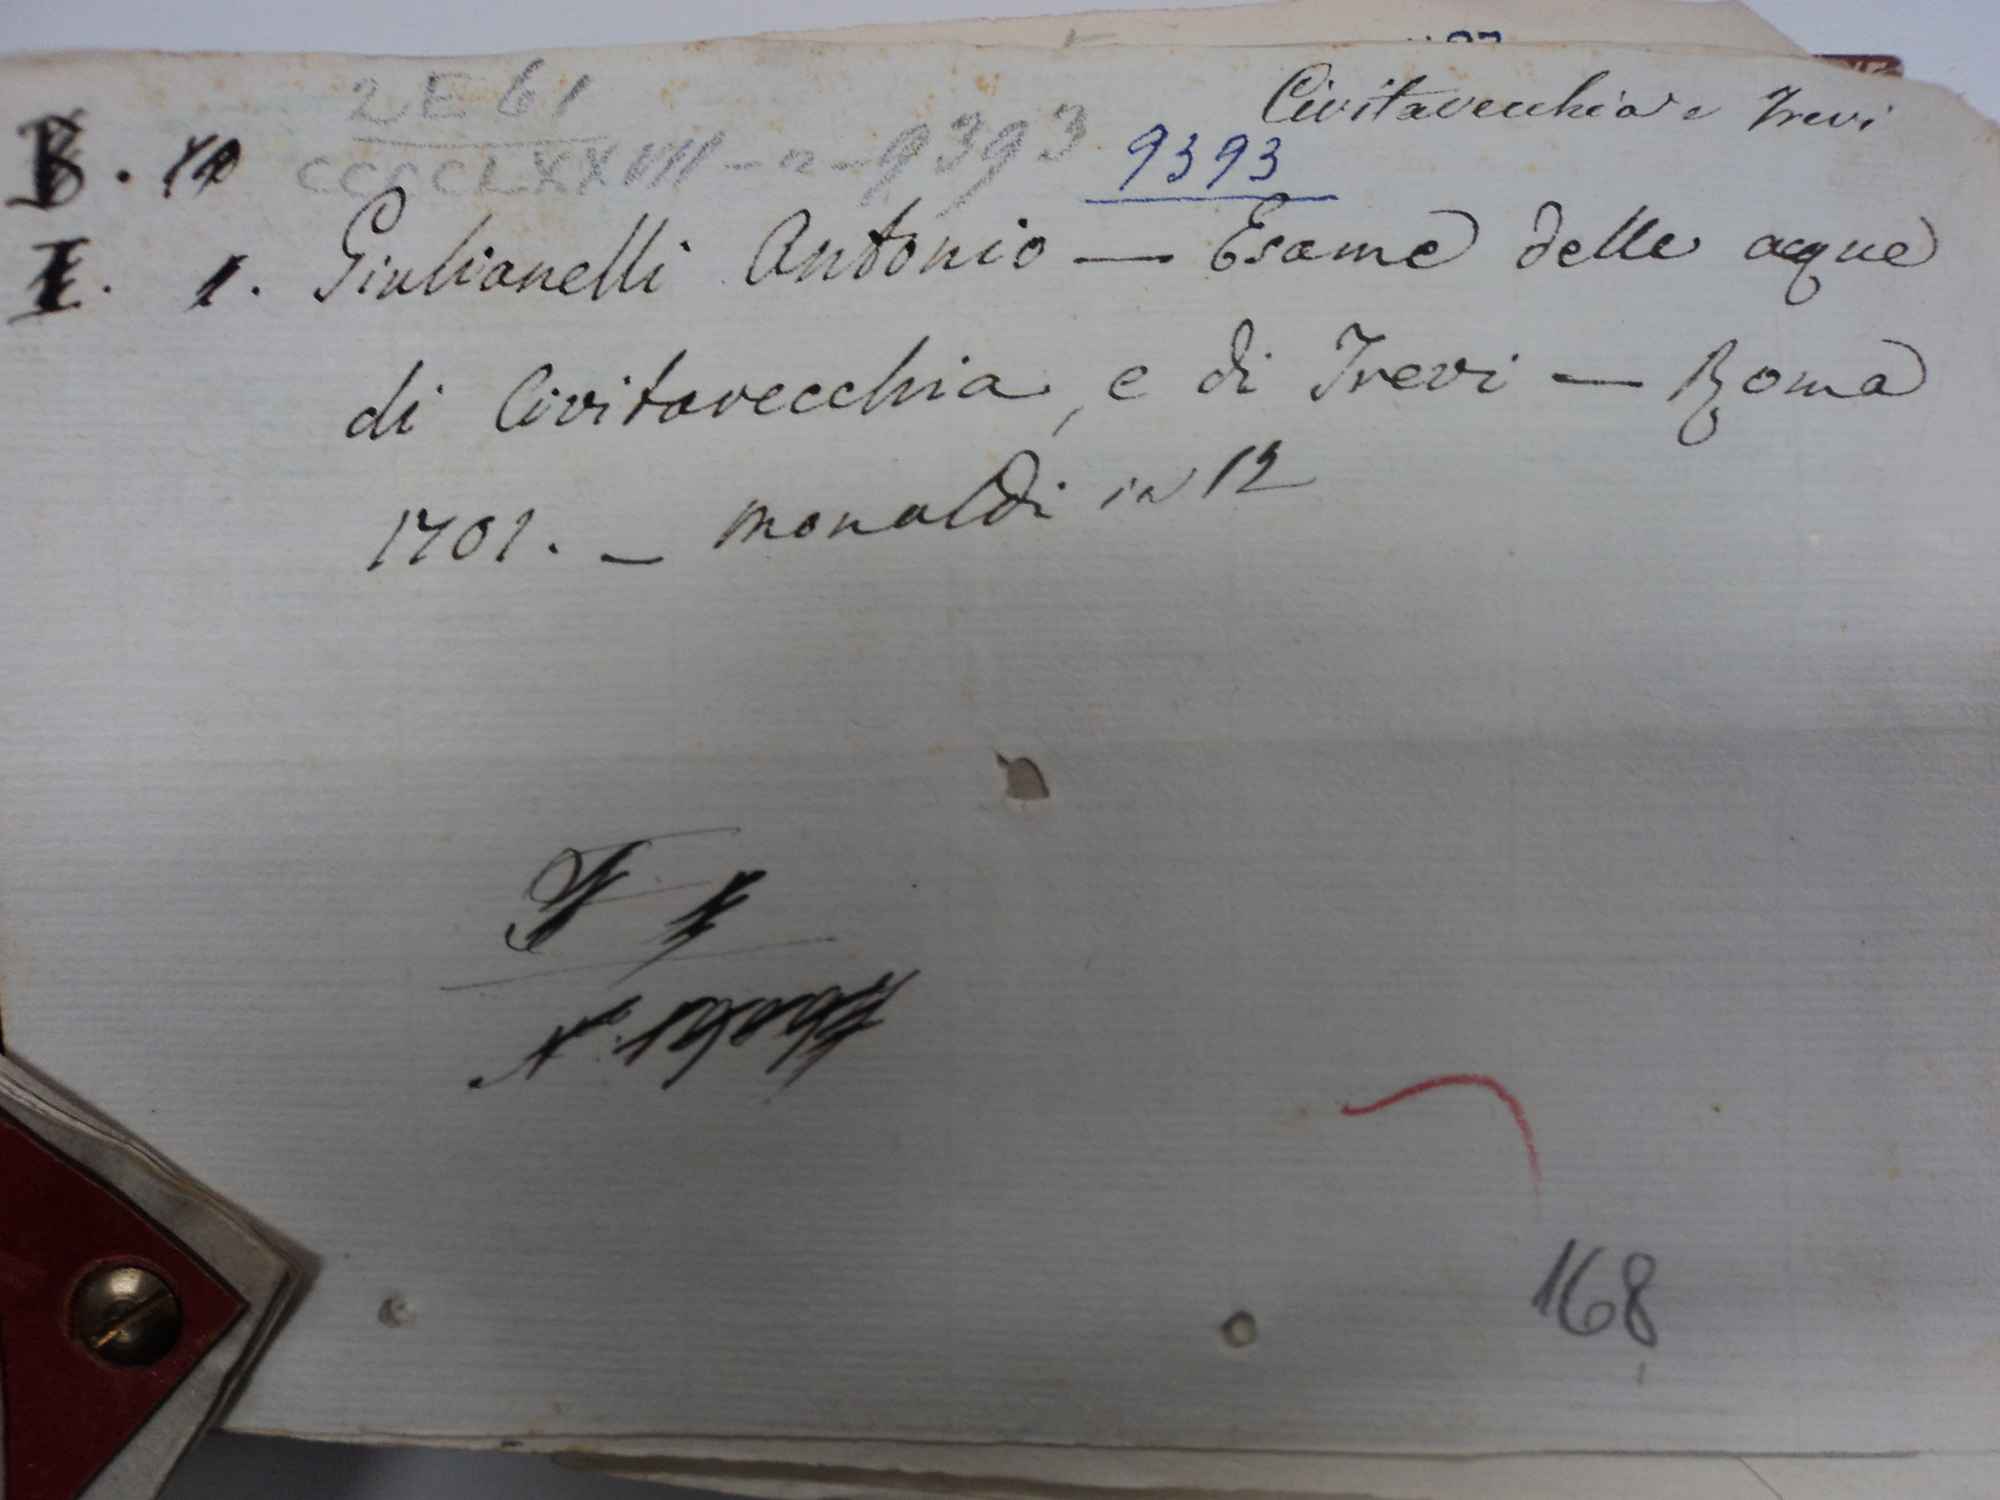 Civitavecchia e Trevi
2 E 61
CCCCLXXVIII - 2 - 9393
9393
B.
I. 1. Giulianelli Antonio — Esame delle acque
di Civitavecchia, e di Trevi — Roma
1701. — Monaldi in 12
168